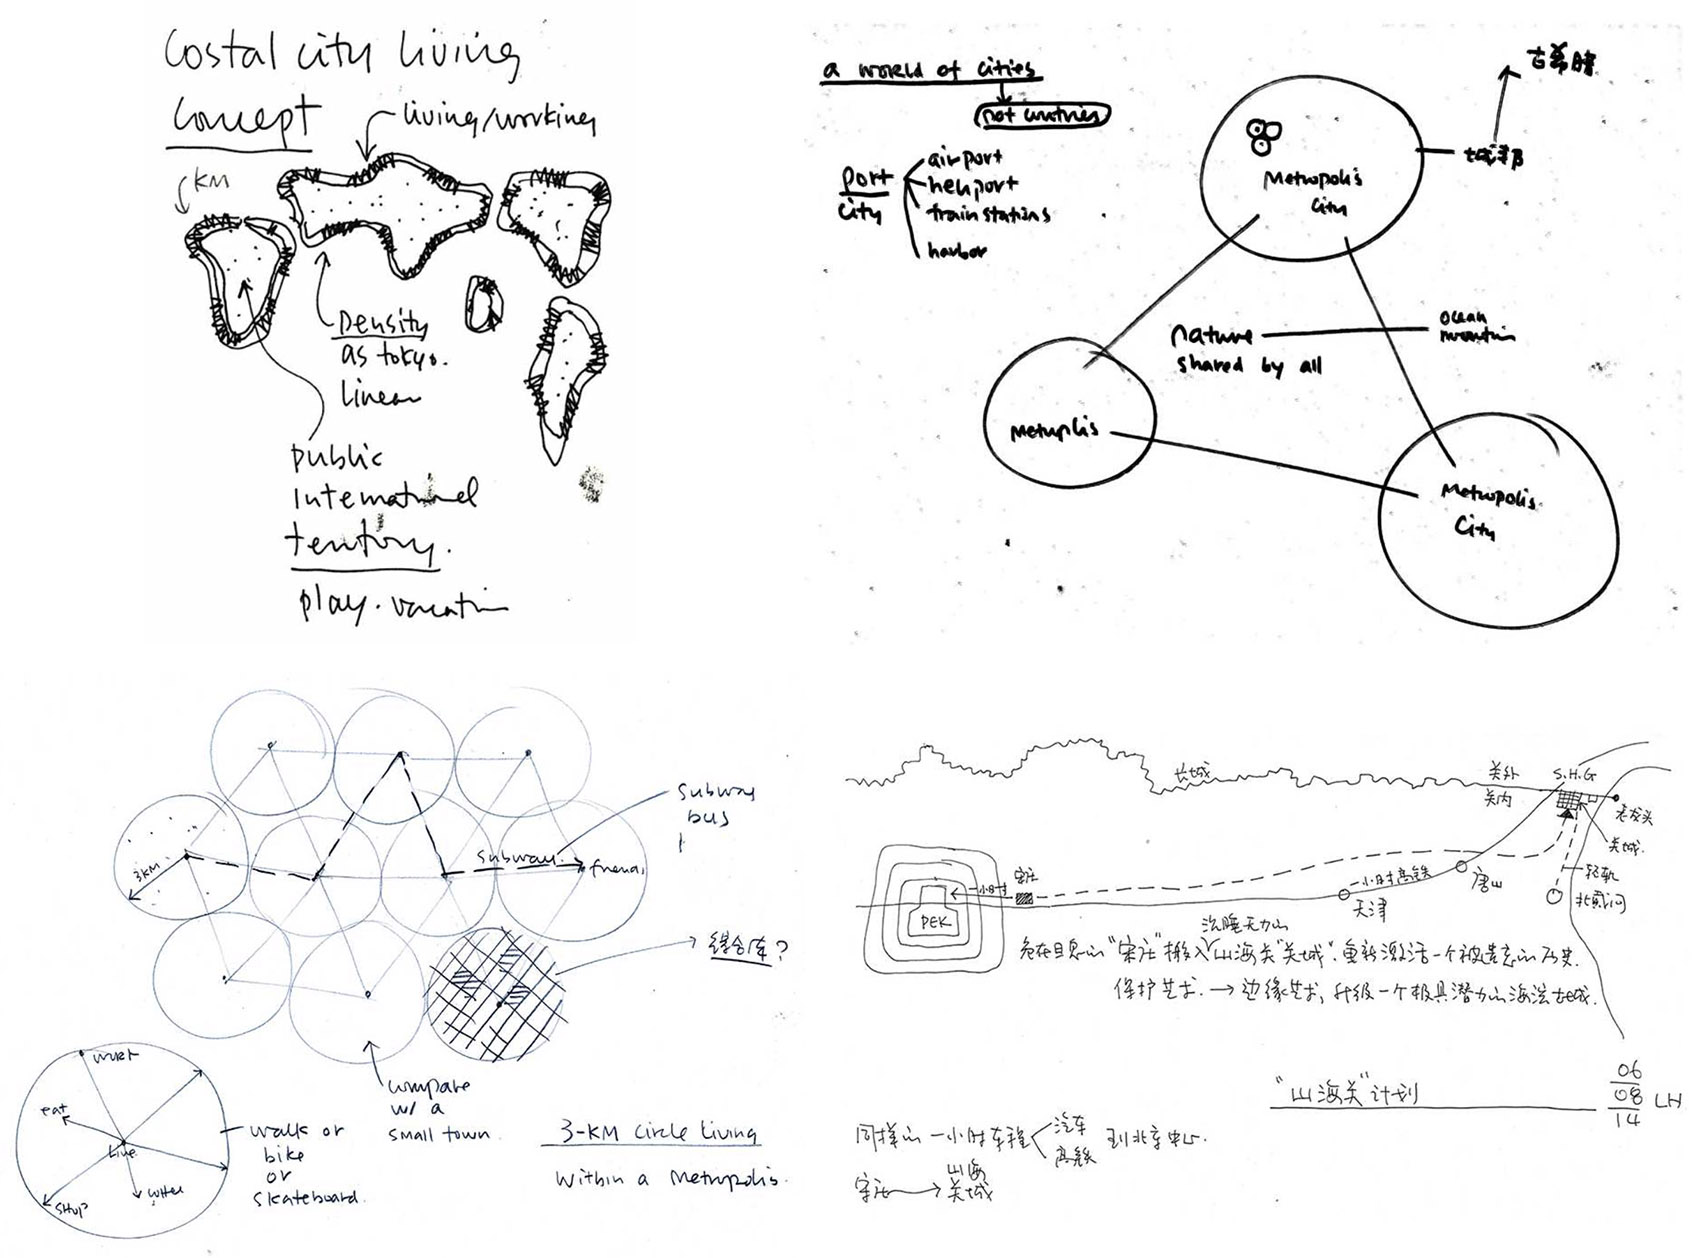 Costal city living
concept
living/working
KM
Density
as tokyo.
Linear
public
international
territory.
play. vacation
a world of cities
not countries
port
city
airport
heliport
train stations
harbor
古希腊
城邦
Metropolis
city
nature
shared by all
ocean
mountain
Metroplis
Metropolis
City
subway
bus
3KM
subway
friend
综合体?
compare
w/ a
small town
work
eat
Live
shop
coffee
walk or
bike
or
skateboard.
3-KM Circle Living
within a Metropolis.
长城
关外
S.H.G
关内
老龙头
关城
轻轨
北戴河
唐山
一小时高铁
天津
宋庄
一小时
PEK
沉睡无力的
危在旦夕的"宋庄"搬入"山海关"关城". 重新激活一个被遗忘的历史.
保护艺术. → 边缘艺术, 升级一个极具潜力的海滨古城.
"山海关"计划
06
08
14
LH
同样的一小时车程
汽车
高铁
到北京中心.
宋庄 → 山海
关城